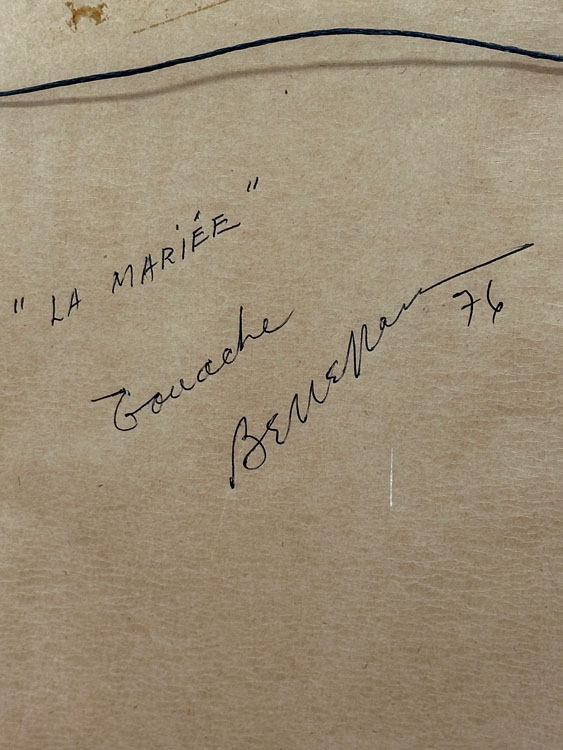 "LA MARIÉE"
Gouache
76